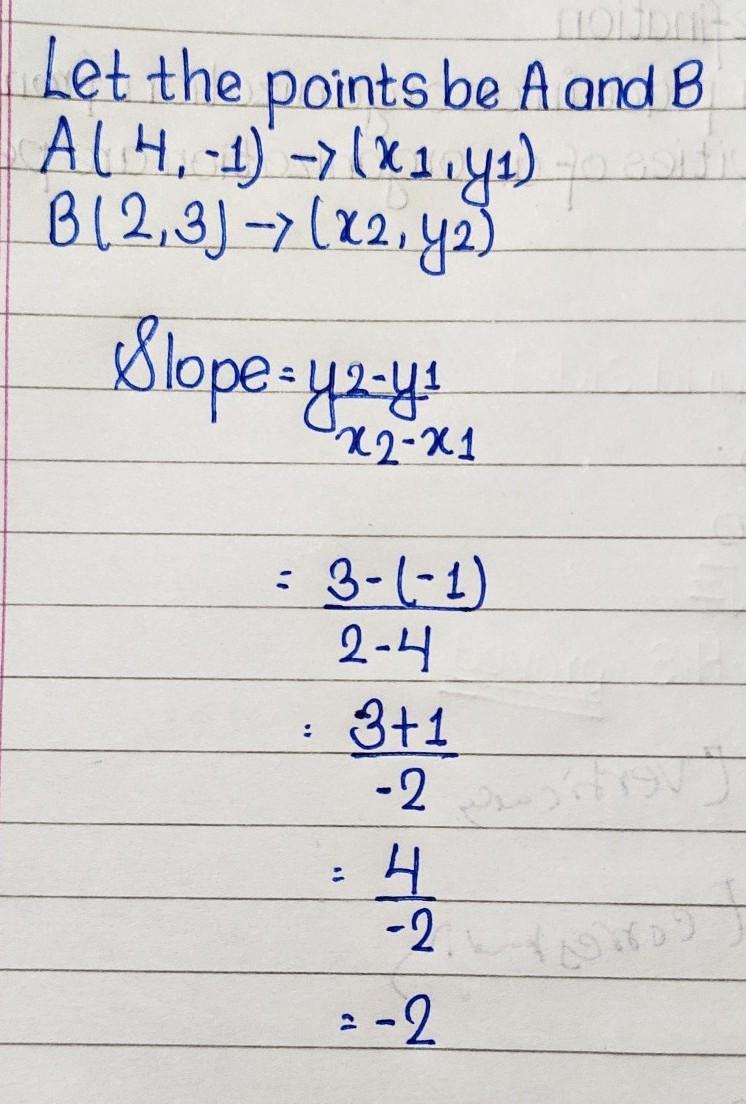 Let the points be A and B
A(4,-1) → (x1,y1)
B(2,3) → (x2,y2)
Slope = y2-y1
x2-x1
= 3-(-1)
2-4
= 3+1
-2
= 4
-2
= -2